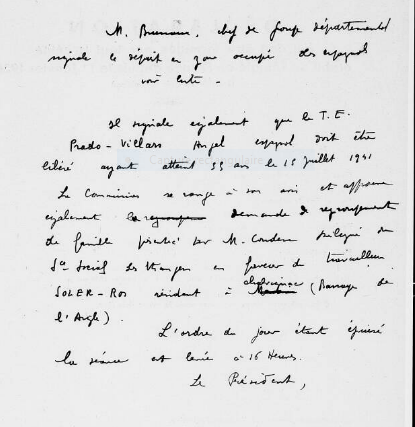 M. Bruneau, chef de Groupe départemental
signale le départ en zone occupée des espagnols
voir liste -
Il signale également que le T.E.
Prado-Villars Angel espagnol doit être
libéré ayant atteint 55 ans le 15 juillet 1941
La Commission se range à son avis et approuve
également la demande de regroupement
de famille présenté par M. Condem délégué du
Sce Social des Etrangers en faveur du travailleur
SOLER-Ros résidant à (Barrage de
l'Aigle).
L'ordre du jour étant épuisé
la séance est levée à 16 Heures.
Le Président,